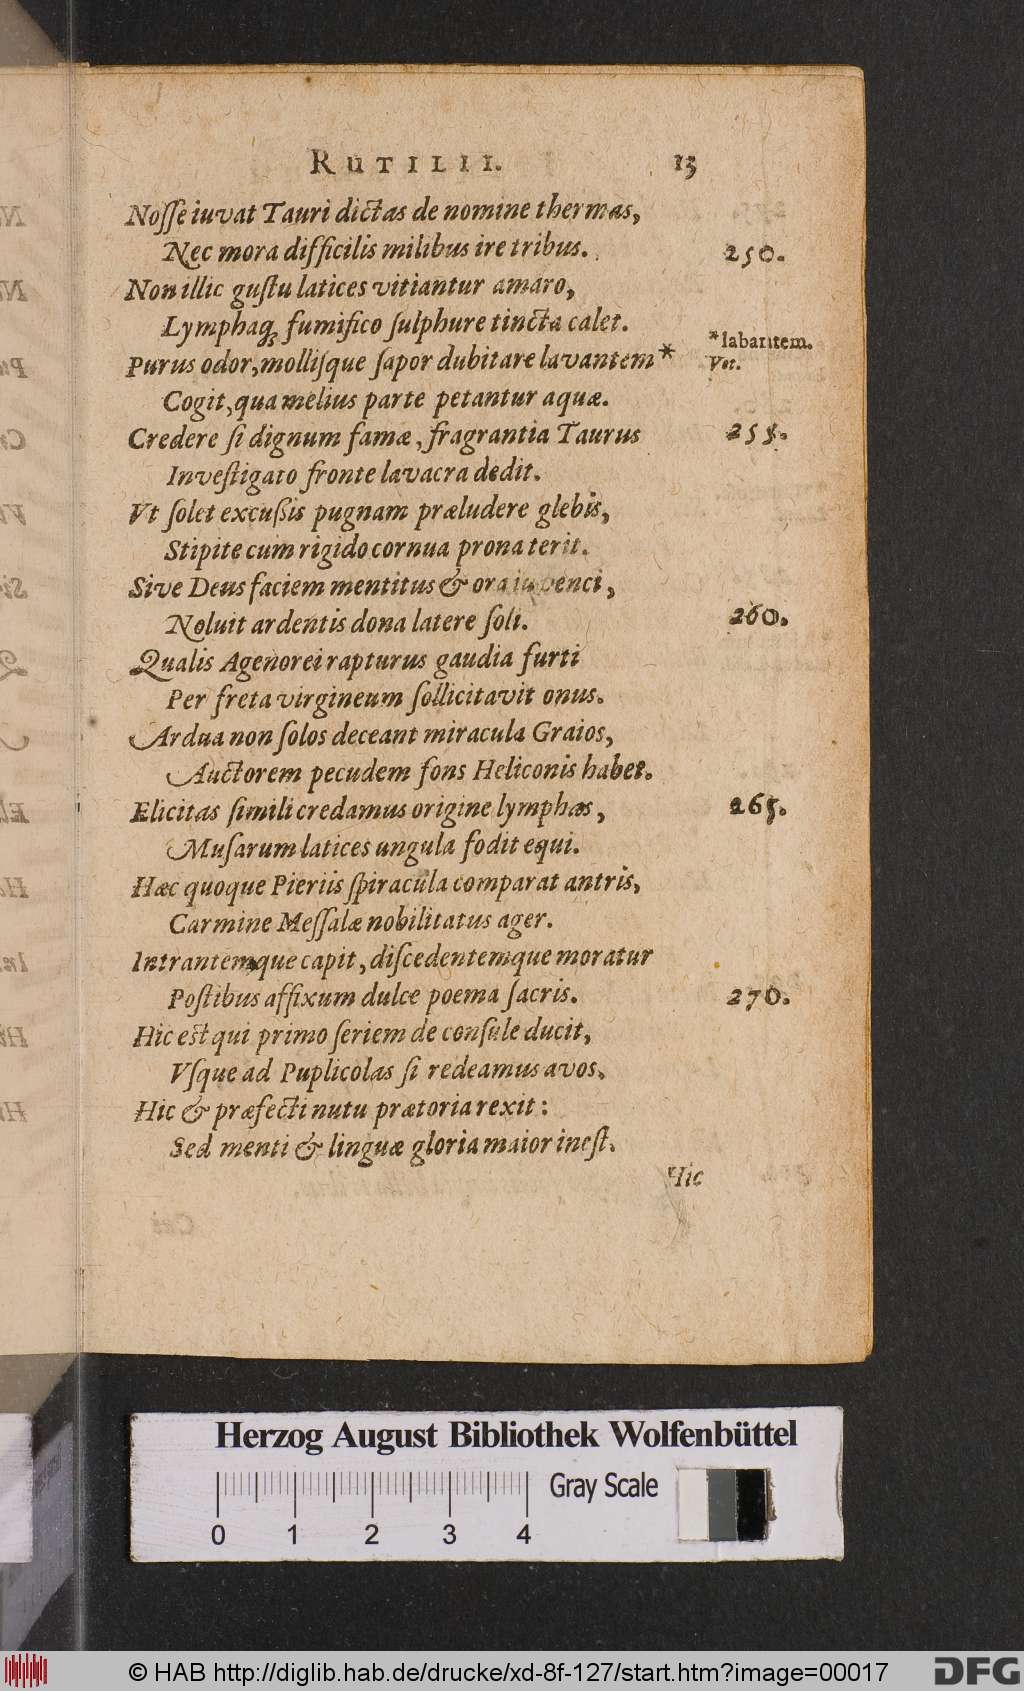 RUTILII. 13
Nosse iuvat Tauri dictas de nomine thermas,
Nec mora difficilis milibus ire tribus. 250.
Non illic gustu latices vitiantur amaro,
Lymphaq; fumifico sulphure tincta calet.
Purus odor, mollisque sapor dubitare lavantem* *labantem. Vet.
Cogit, qua melius parte petantur aquæ.
Credere si dignum famæ, fragrantia Taurus 255.
Investigato fronte lavacra dedit.
Vt solet excussis pugnam præludere glebis,
Stipite cum rigido cornua prona terit.
Sive Deus faciem mentitus & ora iuvenci,
Noluit ardentis dona latere soli. 260.
Qualis Agenorei rapturus gaudia furti
Per freta virgineum sollicitavit onus.
Ardua non solos deceant miracula Graios,
Auctorem pecudem fons Heliconis habet.
Elicitas simili credamus origine lymphas, 265.
Musarum latices ungula fodit equi.
Hæc quoque Pieriis spiracula comparat antris,
Carmine Messalæ nobilitatus ager.
Intrantemque capit, discedentemque moratur
Postibus affixum dulce poema sacris. 270.
Hic est qui primo seriem de consule ducit,
Vsque ad Puplicolas si redeamus avos.
Hic & præfecti nutu prætoria rexit:
Sed menti & linguæ gloria maior inest.
Hic
Herzog August Bibliothek Wolfenbüttel
Gray Scale
0 1 2 3 4
© HAB http://diglib.hab.de/drucke/xd-8f-127/start.htm?image=00017
DFG